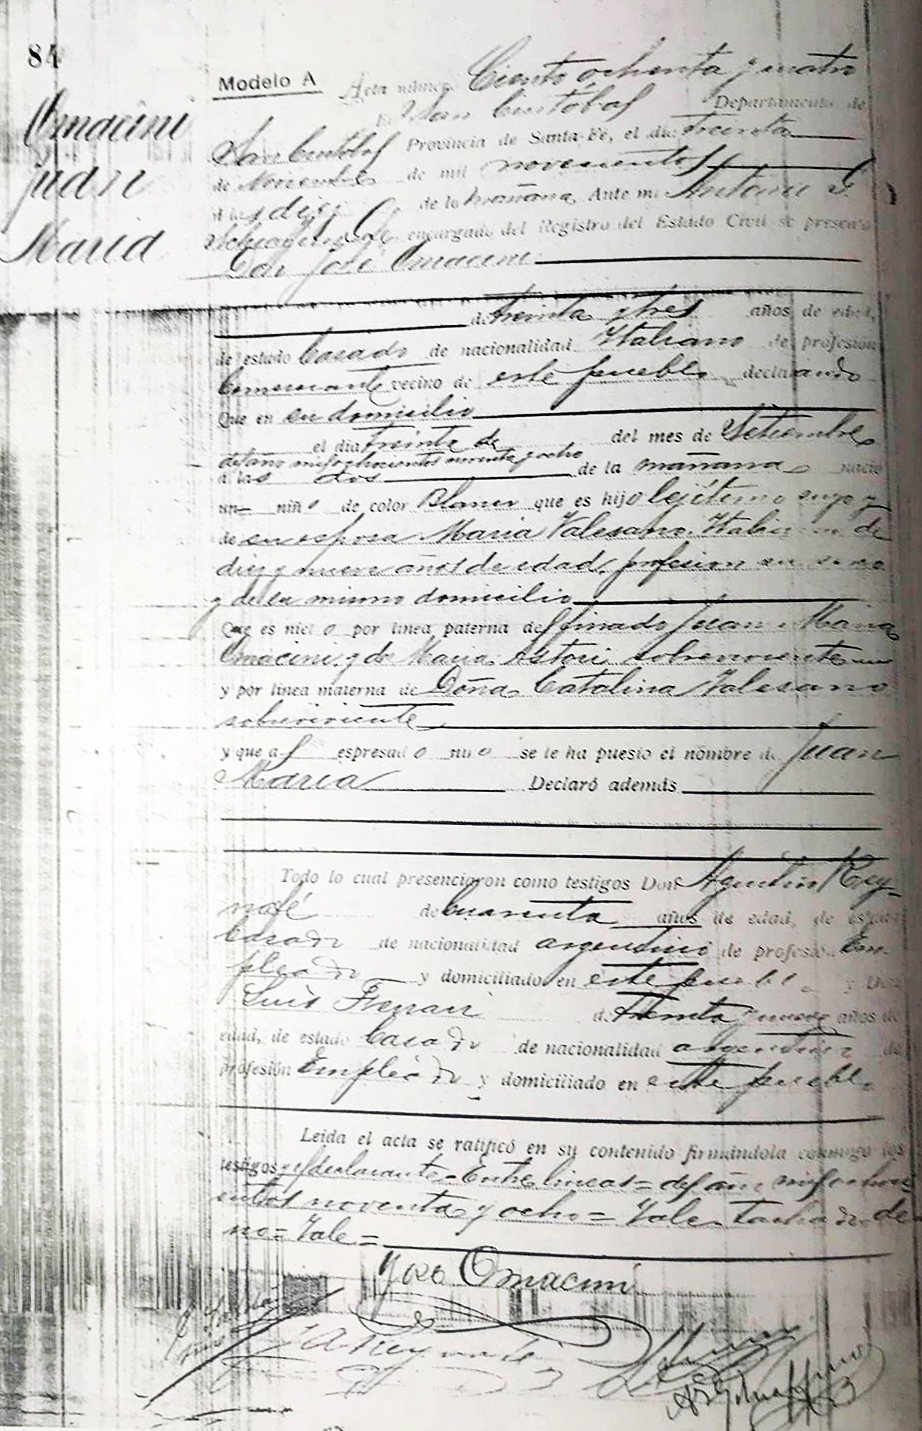 84
Omacini
Juan
Maria
Modelo A
Acta número Ciento ochenta y cuatro
En San Cristóbal Departamento de
San Cristóbal Provincia de Santa-Fé, el día treinta
de Noviembre de mil novecientos
a las diez de la mañana Ante mi Antonio S.
encargado del Registro del Estado Civil se presentó
Don José Omacini
de treinta y tres años de edad,
de estado Casado de nacionalidad Italiano de profesión
Comerciante vecino de este pueblo declarando
Que en su domicilio
el día treinta de del mes de Setiembre
del año mil ochocientos noventa y ocho
a las dos de la mañana nació
un niño de color Blanco que es hijo lejítimo suyo y
de su esposa Maria Valesano, Italiana de
diez y nueve años de edad, profesion
y de su mismo domicilio
Que es nieto por línea paterna del finado Juan Maria
Omacini y de Maria Astori sobreviviente
y por línea materna de Doña Catalina Valesano
sobreviviente
y que al espresado niño se le ha puesto el nombre de Juan
Maria Declaró además
Todo lo cual presenciaron como testigos Don Agustin Rey-
nafé de cuarenta años de edad, de estado
Casado de nacionalidad argentino de profesión Em-
pleado y domiciliado en este pueblo y Don
Luis Ferrari de treinta y nueve años de
edad, de estado Casado de nacionalidad argentino de
profesión Empleado y domiciliado en este pueblo
Leida el acta se ratificó en su contenido firmándola conmigo los
testigos y el declarante - Entre lineas = del año mil ochoci-
entos noventa y ocho = Vale - Tachado de
no = Vale =
Jose Omacini